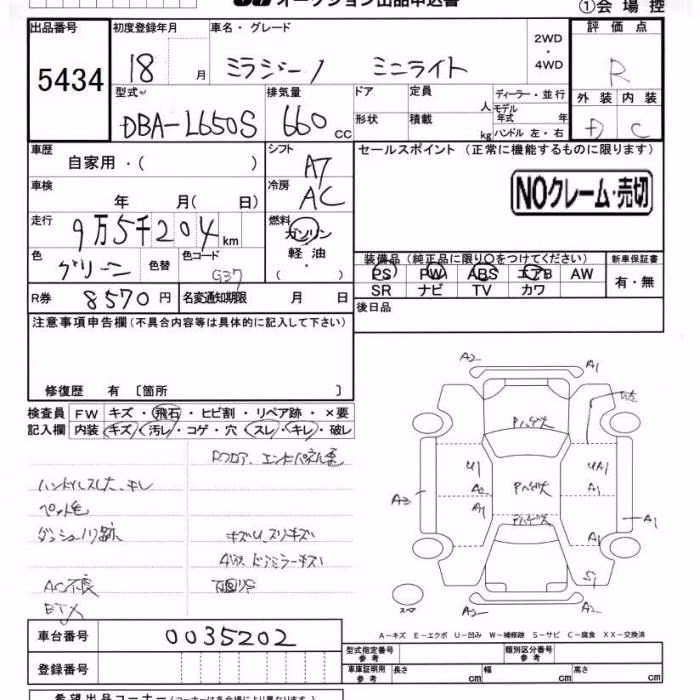 オークション出品申込書
①会場控
出品番号 初度登録年月 車名・グレード 評価点
5434 18 月 ミラジーノ ミニライト 2WD ・ 4WD R
型式 排気量 ドア 定員 人 ディーラー・並行 外装 内装
DBA-L650S 660 cc 形状 積載 kg モデル年式 年 ハンドル 左・右 D C
車歴 シフト セールスポイント (正常に機能するものに限ります)
自家用・( ) AT
車検 冷房 NOクレーム・売切
年 月( 日) AC
走行 燃料
9万5千204 km ガソリン
色 色替 色コード 軽油
グリーン G37 ・ ( )
装備品(純正品に限り○をつけてください) 新車保証書
PS PW ABS エアB AW 有・無
SR ナビ TV カワ
R券 8570円 名変通知期限 月 日 後日品
注意事項申告欄(不具合内容等は具体的に記入して下さい)
修復歴 有 〔箇所 〕
検査員 FW キズ・飛石・ヒビ割・リペア跡・×要
記入欄 内装 キズ・汚レ・コゲ・穴・スレ・キレ・破レ
ハンドルスレ
ペット毛
AC不良
キズU、スリキズ
ドアミラーキズ
下回りサ
A2
A1
Pハゲ大
U1
A2
A1
UA1
A1
Pハゲ大
A3
A1
Pハゲ大
A1
S1
スペア
A2
A2
A-キズ E-エクボ U-凹み W-補修跡 S-サビ C-腐食 XX-交換済
車台番号 0035202
登録番号
型式指定番号 参考 類別区分番号 参考
車庫証明用 参考 長さ cm 幅 cm 高さ cm
希望出品コーナー(コーナーは各会場により異なります)